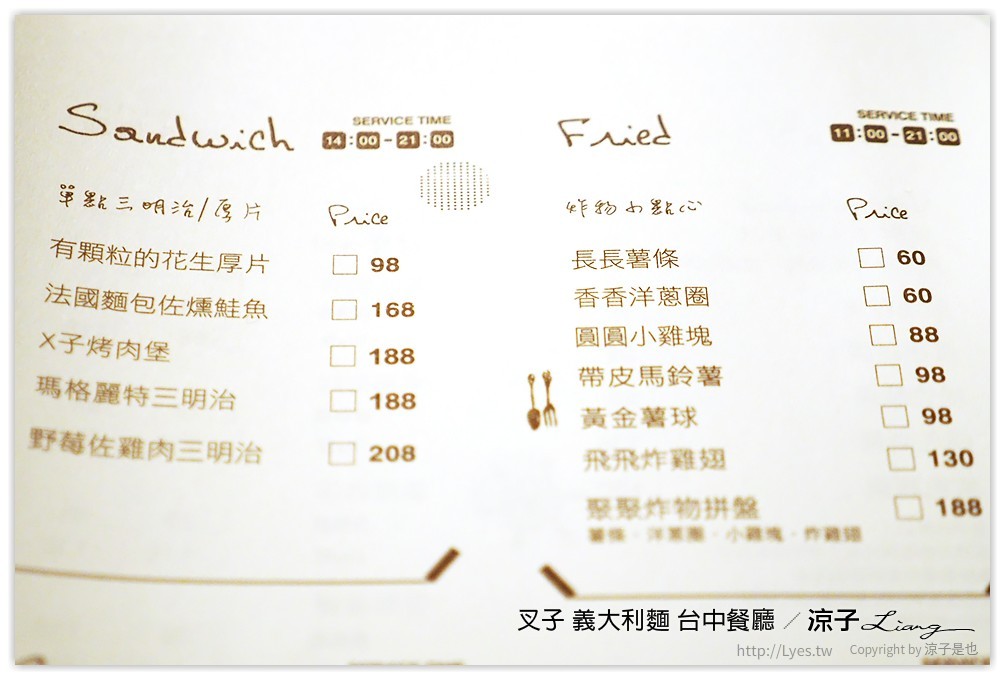 Sandwich
SERVICE TIME
14:00-21:00
單點三明治/厚片
Price
有顆粒的花生厚片 98
法國麵包佐燻鮭魚 168
X子烤肉堡 188
瑪格麗特三明治 188
野莓佐雞肉三明治 208
Fried
SERVICE TIME
11:00-21:00
炸物小點心
Price
長長薯條 60
香香洋蔥圈 60
圓圓小雞塊 88
帶皮馬鈴薯 98
黃金薯球 98
飛飛炸雞翅 130
聚聚炸物拼盤 188
薯條．洋蔥圈．小雞塊．炸雞翅
叉子 義大利麵 台中餐廳 ／涼子 Liang
http://Lyes.tw Copyright by 涼子是也